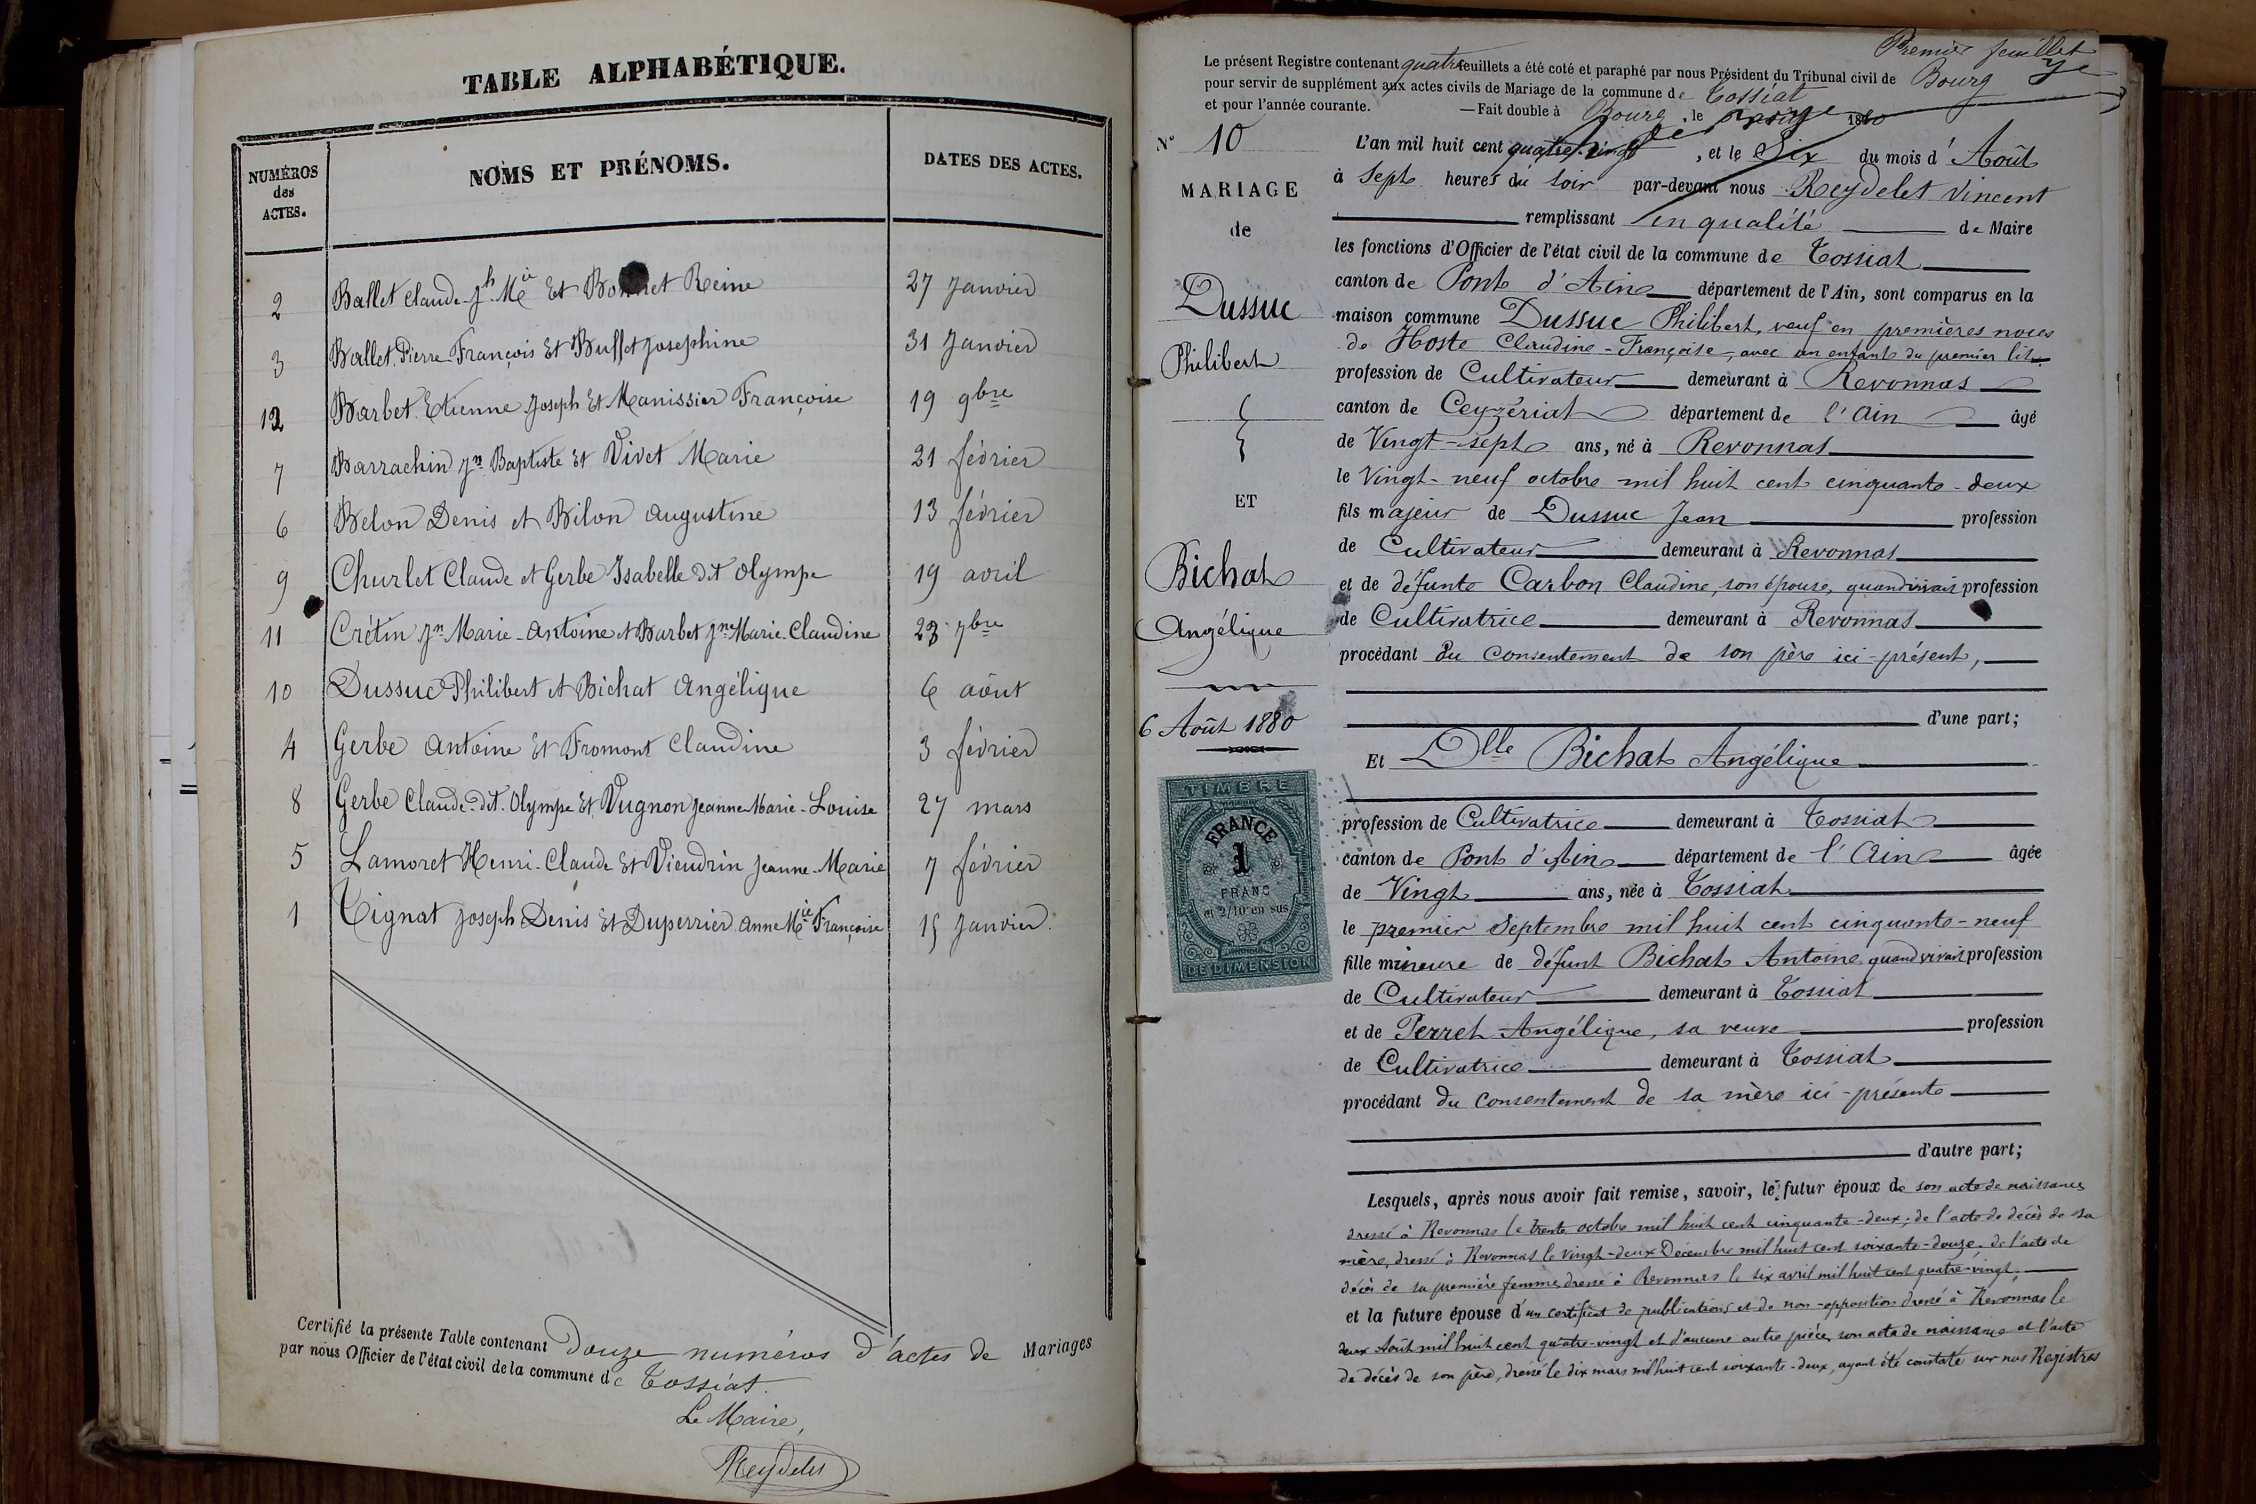 TABLE ALPHABÉTIQUE.
NUMÉROS des ACTES. NOMS ET PRÉNOMS. DATES DES ACTES.
2 Ballet Claude Jh Mie Et Bonnet Reine 27 Janvier
3 Ballet Pierre François Et Buffet Josephine 31 Janvier
12 Barbet Etienne Joseph Et Manissier Françoise 19 9bre
7 Barrachin Jn Baptiste Et Vivet Marie 21 février
6 Belon Denis et Bilon Augustine 13 février
9 Churlet Claude et Gerbe Isabelle dit Olympe 19 avril
11 Crétin Jn Marie-Antoine et Barbet Jne Marie-Claudine 23 7bre
10 Dussuc Philibert et Bichat Angélique 6 août
4 Gerbe Antoine Et Fromont Claudine 3 février
8 Gerbe Claude-dit-Olympe Et Vugnon Jeanne-Marie-Louise 27 mars
5 Lamoret Henri-Claude Et Vieudrin Jeanne-Marie 7 février
1 Tignat Joseph Denis Et Duperrier Anne Mie Françoise 15 Janvier.
Certifié la présente Table contenant Douze numéros d'actes de Mariages
par nous Officier de l'état civil de la commune de Tossiat.
Le Maire,
Reydelet
Premier feuillet
Le présent Registre contenant quatre feuillets a été coté et paraphé par nous Président du Tribunal civil de Bourg
pour servir de supplément aux actes civils de Mariage de la commune de Tossiat
et pour l'année courante. — Fait double à Bourg, le 1880
N° 10
MARIAGE
de
Dussuc
Philibert
ET
Bichat
Angélique
6 Août 1880
TIMBRE
FRANCE
1
FRANC
et 2/10 en sus
DE DIMENSION
L'an mil huit cent quatre-vingt, et le Six du mois d'Août
à Sept heures du soir par-devant nous Reydelet Vincent
remplissant en qualité de Maire
les fonctions d'Officier de l'état civil de la commune de Tossiat
canton de Pont d'Ain département de l'Ain, sont comparus en la
maison commune Dussuc Philibert, veuf en premières noces
de Hoste Claudine-Françoise, avec un enfant du premier lit
profession de Cultivateur demeurant à Revonnas
canton de Ceyzériat département de l'Ain âgé
de Vingt-sept ans, né à Revonnas
le Vingt-neuf octobre mil huit cent cinquante-deux
fils majeur de Dussuc Jean profession
de Cultivateur demeurant à Revonnas
et de défunte Carbon Claudine, son épouse, quand vivait profession
de Cultivatrice demeurant à Revonnas
procédant du consentement de son père ici-présent,
d'une part;
Et Dlle Bichat Angélique
profession de Cultivatrice demeurant à Tossiat
canton de Pont d'Ain département de l'Ain âgée
de Vingt ans, née à Tossiat
le premier Septembre mil huit cent cinquante-neuf
fille mineure de défunt Bichat Antoine quand vivait profession
de Cultivateur demeurant à Tossiat
et de Perret Angélique, sa veuve profession
de Cultivatrice demeurant à Tossiat
procédant du consentement de sa mère ici-présente
d'autre part;
Lesquels, après nous avoir fait remise, savoir, le futur époux de son acte de naissance
dressé à Revonnas le trente octobre mil huit cent cinquante-deux; de l'acte de décès de sa
mère, dressé à Revonnas le vingt-deux Décembre mil huit cent soixante-douze, de l'acte de
décès de sa première femme dressé à Revonnas le six avril mil huit cent quatre-vingt,
et la future épouse d'un certificat de publications et de non-opposition dressé à Revonnas le
deux Août mil huit cent quatre-vingt et d'aucune autre pièce, son acte de naissance et l'acte
de décès de son père, dressé le dix mars mil huit cent soixante-deux, ayant été constaté sur nos Registres